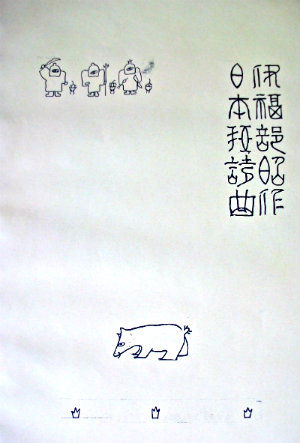 伊福部昭作
日本狂詩曲